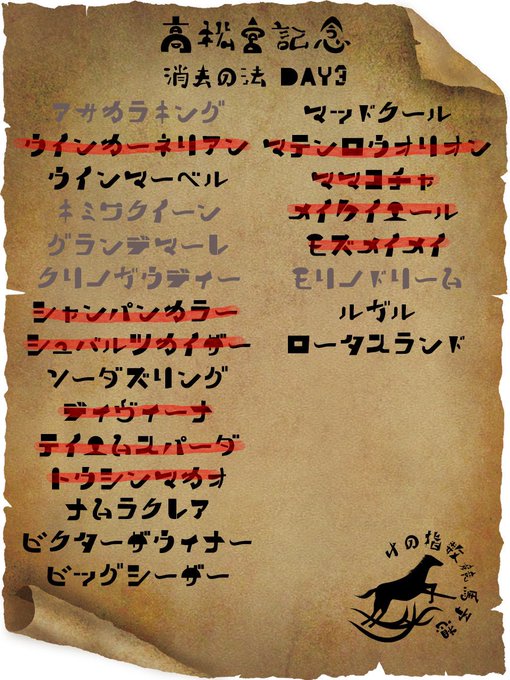 高松宮記念
消去の法 DAY3
アサカラキング
ウインカーネリアン
ウインマーベル
キミワクイーン
グランデマーレ
クリノガウディー
シャンパンカラー
シュバルツカイザー
ソーダズリング
ディヴィーナ
テイエムスパーダ
トウシンマカオ
ナムラクレア
ビクターザウィナー
ビッグシーザー
マッドクール
マテンロウオリオン
ママコチャ
メイケイエール
モズメイメイ
モリノドリーム
ルガル
ロータスランド
けの指数競馬予想